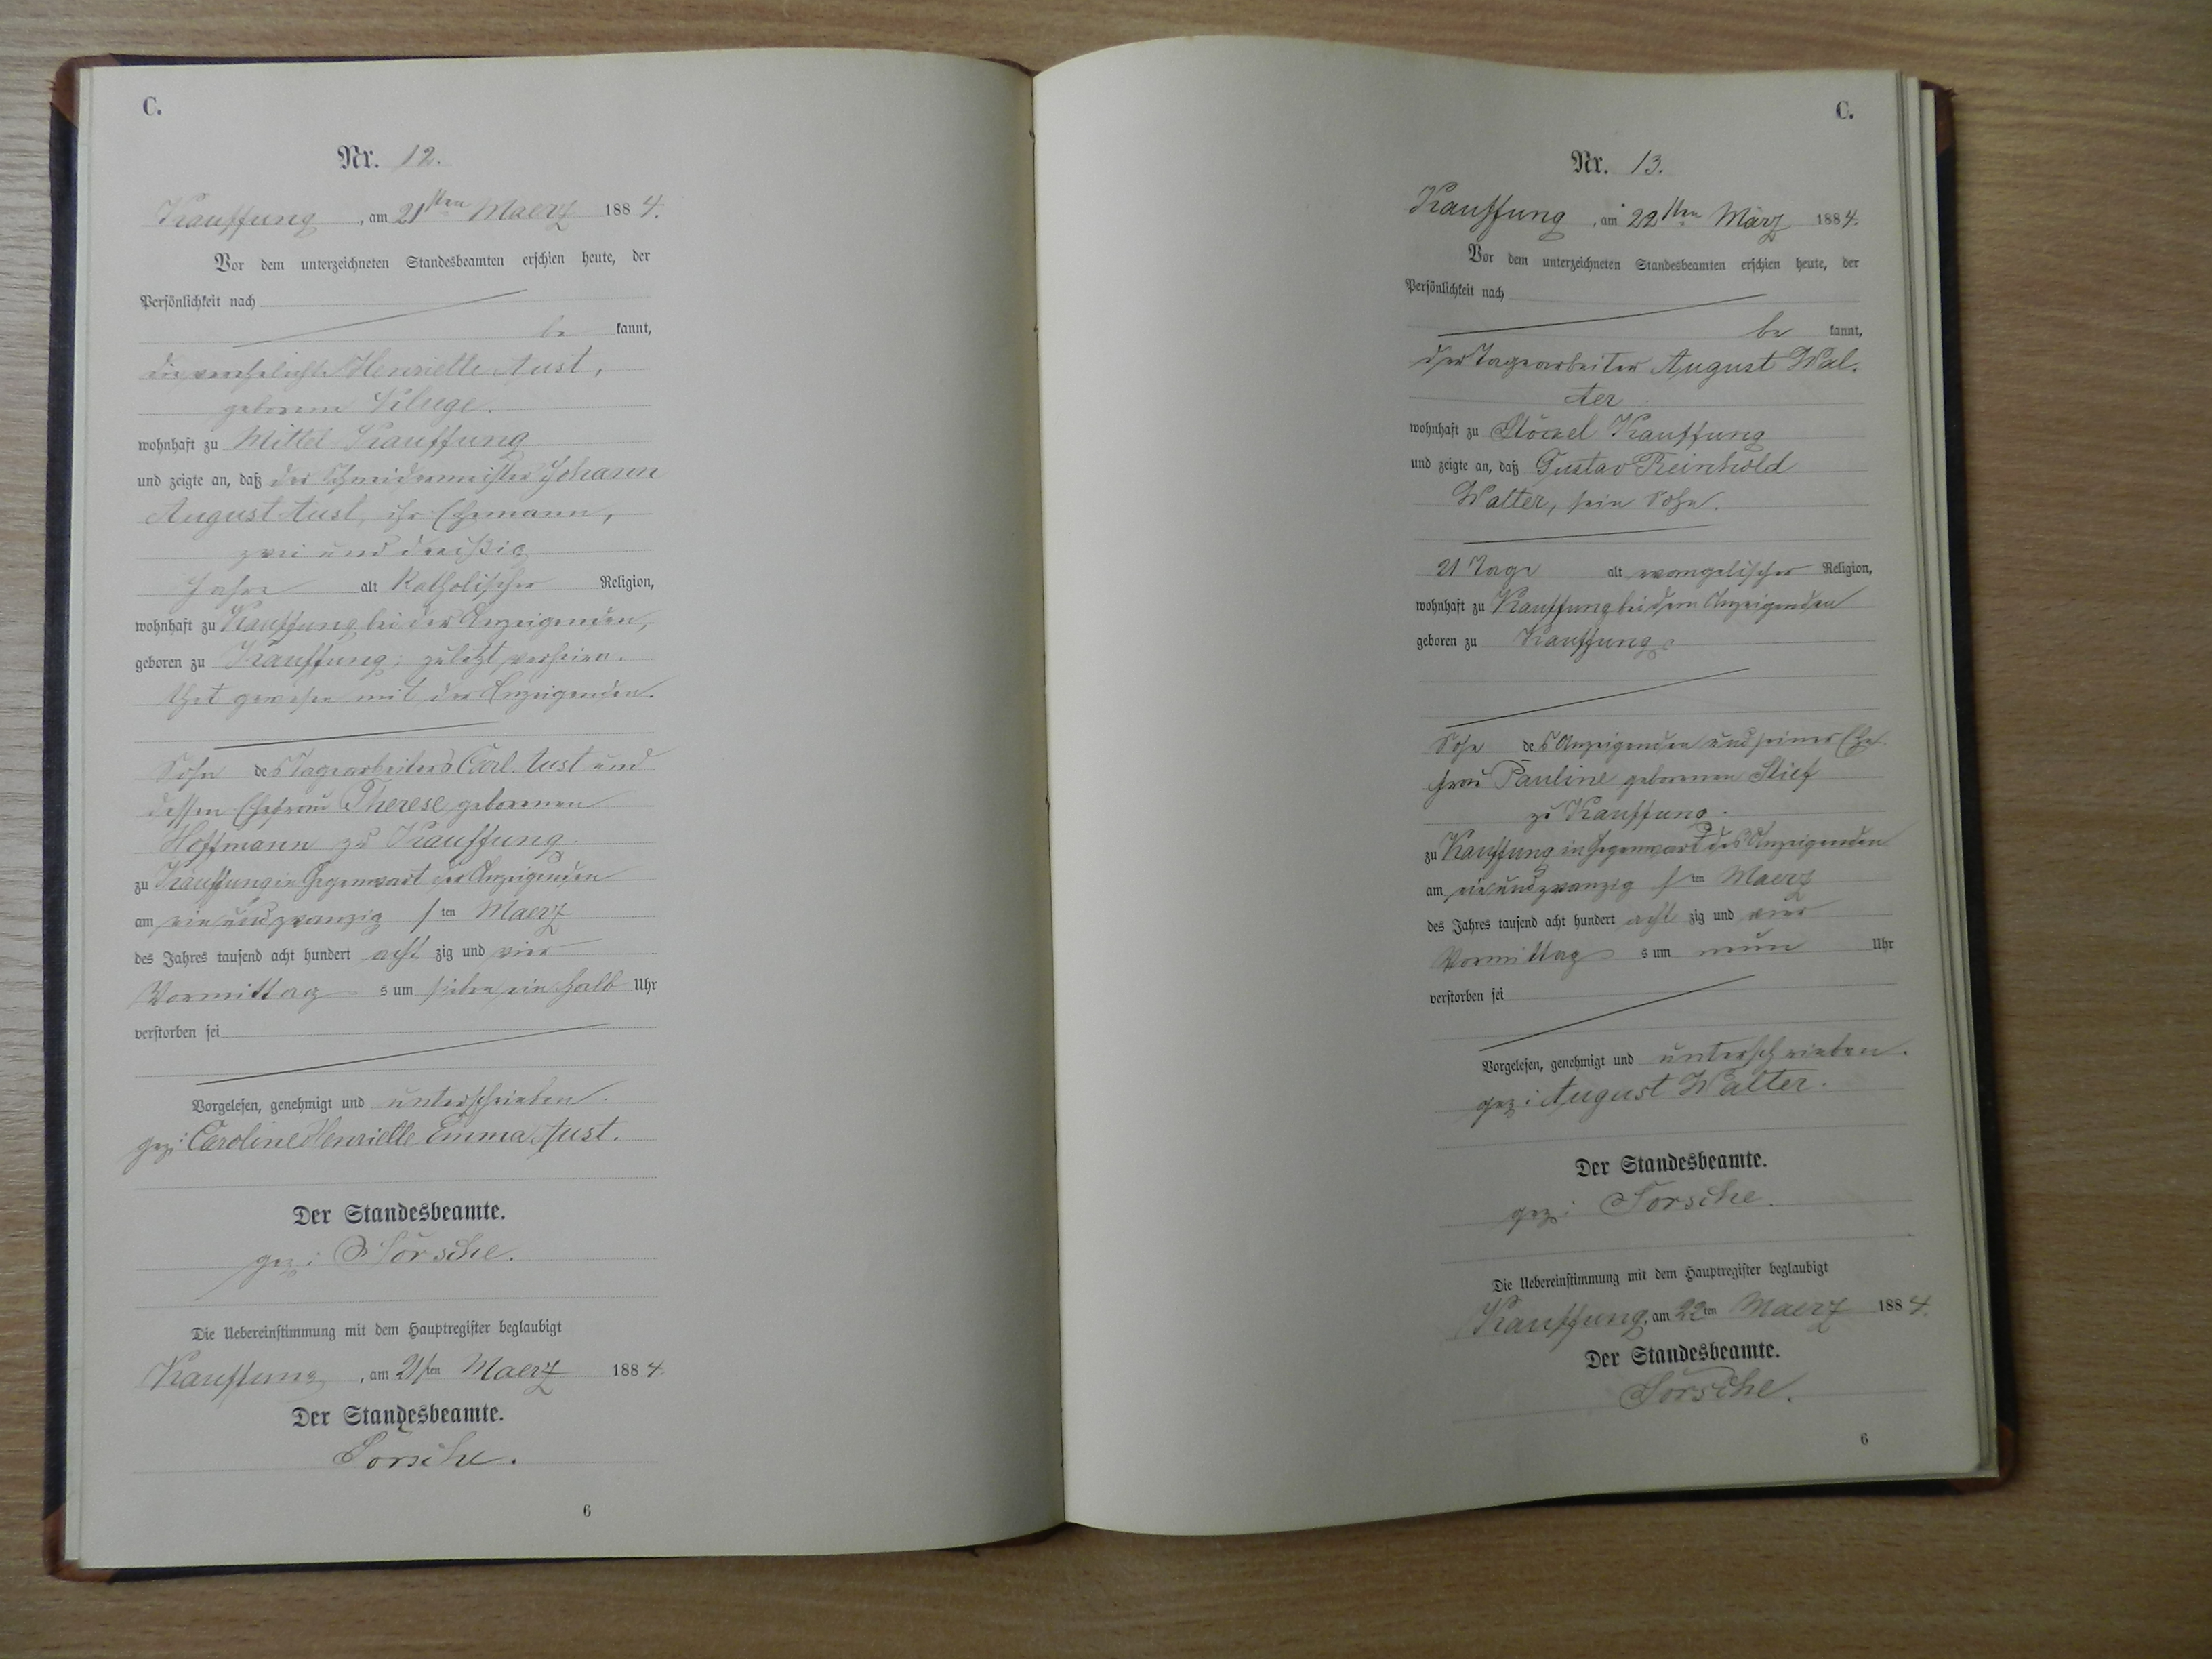 C.
Nr. 12.
Kauffung, am 21sten Maerz 1884.
Vor dem unterzeichneten Standesbeamten erschien heute, der
Persönlichkeit nach
be kannt,
die verehelichte Henriette Aust,
geborene Kluge.
wohnhaft zu Mittel Kauffung
und zeigte an, daß der Schneidermeister Johann
August Aust, ihr Ehemann,
zwei und dreißig
Jahre alt Katholischer Religion,
wohnhaft zu Kauffung bei der Anzeigenden,
geboren zu Kauffung; zuletzt verheira-
thet gewesen mit der Anzeigenden.
Sohn des Tagearbeiters Carl Aust und
dessen Ehefrau Therese geborenen
Hoffmann zu Kauffung.
zu Kauffung in Gegenwart der Anzeigenden
am ein und zwanzig sten Maerz
des Jahres tausend acht hundert acht zig und vier
Vormittag s um sieben ein halb Uhr
verstorben sei
Vorgelesen, genehmigt und unterschrieben.
gez: Caroline Henriette Emma Aust.
Der Standesbeamte.
gez:
Die Uebereinstimmung mit dem Hauptregister beglaubigt
Kauffung, am 21sten Maerz 1884.
Der Standesbeamte.
6
C.
Nr. 13.
Kauffung, am 22sten März 1884.
Vor dem unterzeichneten Standesbeamten erschien heute, der
Persönlichkeit nach
be kannt,
der Tagearbeiter August Wal-
ter
wohnhaft zu Stöckel Kauffung
und zeigte an, daß Gustav Reinhold
Walter, sein Sohn.
21 Tage alt evangelischer Religion,
wohnhaft zu Kauffung bei dem Anzeigenden
geboren zu Kauffung
Sohn des Anzeigenden und seiner Ehe-
frau Pauline geborenen Stief
zu Kauffung.
zu Kauffung in Gegenwart des Anzeigenden
am ein und zwanzig sten Maerz
des Jahres tausend acht hundert acht zig und vier
Vormittag s um neun Uhr
verstorben sei
Vorgelesen, genehmigt und unterschrieben.
gez: August Walter.
Der Standesbeamte.
gez:
Die Uebereinstimmung mit dem Hauptregister beglaubigt
Kauffung, am 22ten Maerz 1884.
Der Standesbeamte.
6